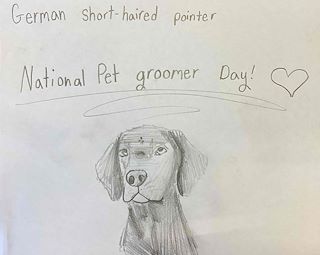 German short-haired pointer
National Pet groomer Day!